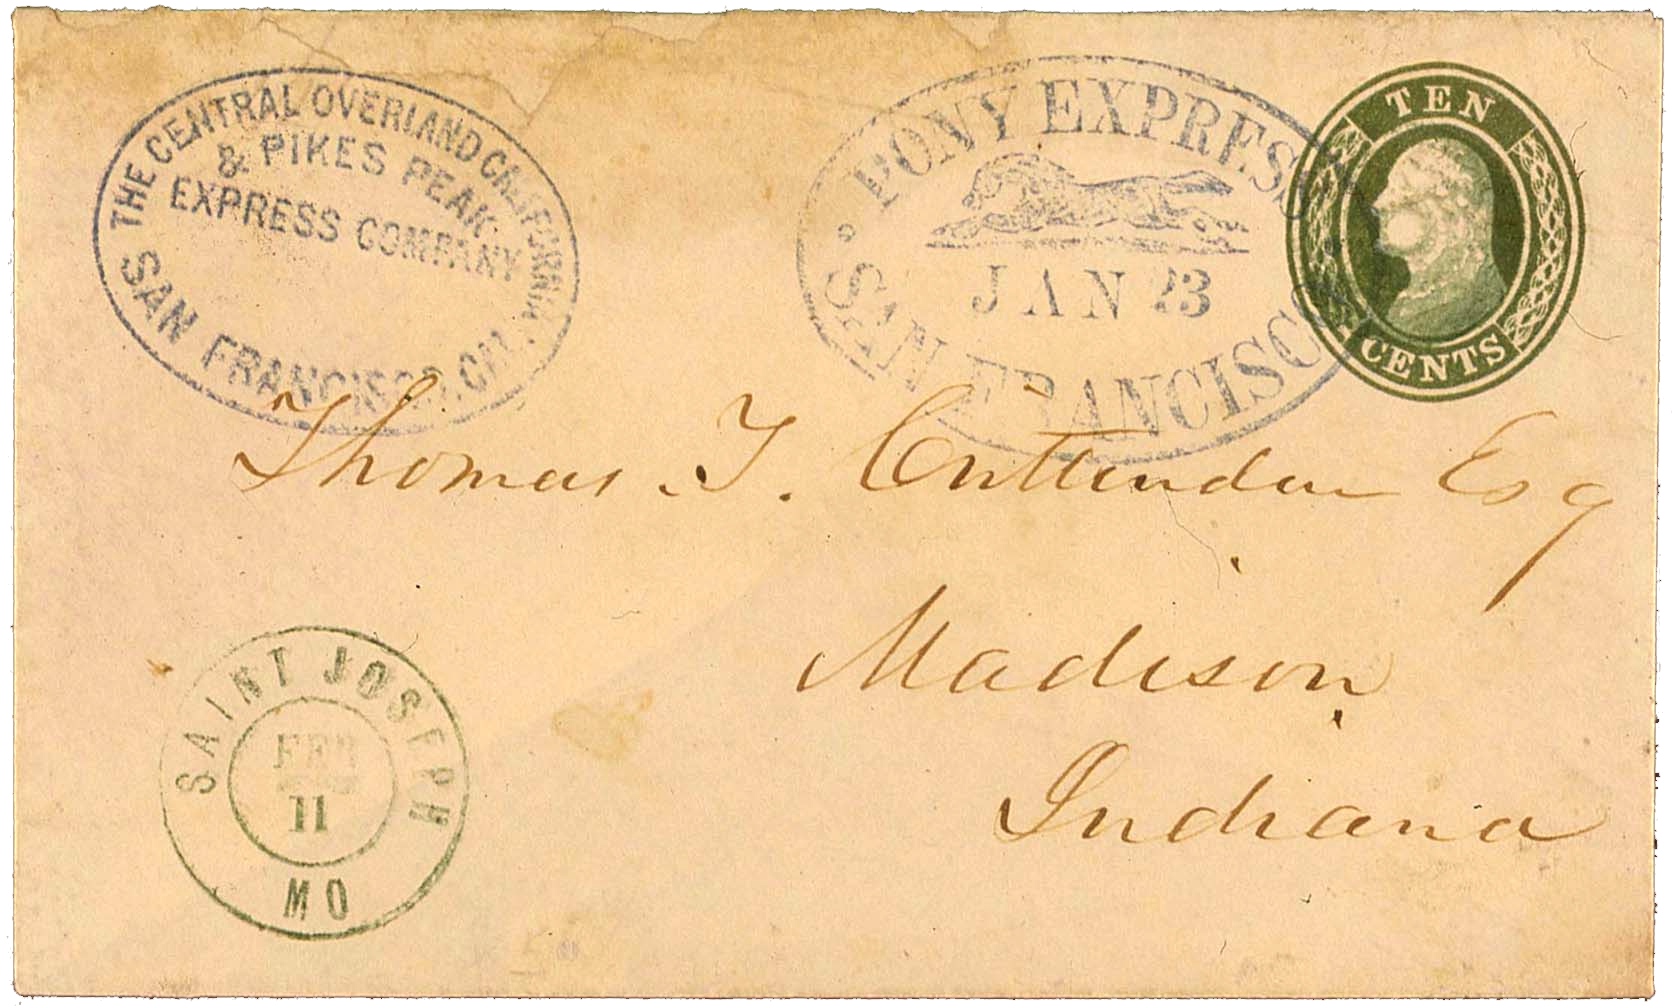 THE CENTRAL OVERLAND CALIFORNIA
& PIKES PEAK
EXPRESS COMPANY
SAN FRANCISCO, CAL.
PONY EXPRESS
JAN 23
SAN FRANCISCO
TEN
CENTS
Thomas T. Crittenden Esq
Madison
Indiana
SAINT JOSEPH
FEB
11
MO